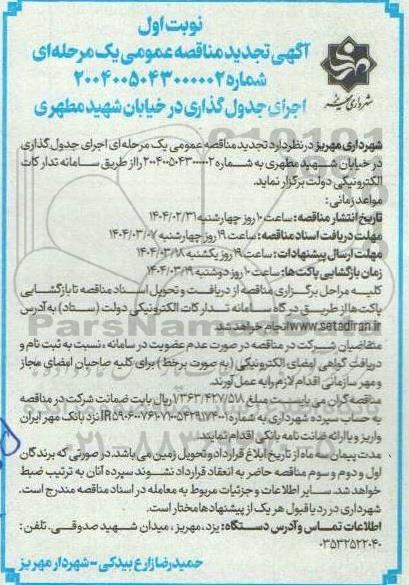 نوبت اول
آگهی تجدید مناقصه عمومی یک مرحله ای
شماره ۲۰۰۴۰۰۵۰۴۳۰۰۰۰۰۲
اجرای جدول گذاری در خیابان شهید مطهری
شهرداری مهریز در نظر دارد تجدید مناقصه عمومی یک مرحله ای اجرای جدول گذاری
در خیابان شهید مطهری به شماره ۲۰۰۴۰۰۵۰۴۳۰۰۰۰۰۲ را از طریق سامانه تدارکات
الکترونیکی دولت برگزار نماید.
مواعد زمانی:
تاریخ انتشار مناقصه: ساعت ۱۰ روز چهارشنبه ۱۴۰۴/۰۲/۳۱
مهلت دریافت اسناد مناقصه: ساعت ۱۹ روز چهارشنبه ۱۴۰۴/۰۳/۰۷
مهلت ارسال پیشنهادات: ساعت ۱۹ روز یکشنبه ۱۴۰۴/۰۳/۱۸
زمان بازگشایی پاکت ها: ساعت ۱۰ روز دوشنبه ۱۴۰۴/۰۳/۱۹
کلیه مراحل برگزاری مناقصه از دریافت و تحویل اسناد مناقصه تا بازگشایی
پاکت ها از طریق درگاه سامانه تدارکات الکترونیکی دولت (ستاد) به آدرس
www.setadiran.ir انجام خواهد شد.
متقاضیان شرکت در مناقصه در صورت عدم عضویت در سامانه، نسبت به ثبت نام و
دریافت گواهی امضای الکترونیکی (به صورت برخط) برای کلیه صاحبان امضای مجاز
و مهر سازمانی اقدام لازم را به عمل آورند.
مناقصه گران می بایست مبلغ ۷/۳۶۳/۴۲۷/۵۱۸ ریال بابت ضمانت شرکت در مناقصه
به حساب سپرده شهرداری به شماره نزد بانک مهر ایران
واریز و یا ارائه ضمانت نامه بانکی اقدام نمایند.
مدت پیمان سه ماه از تاریخ ابلاغ قرارداد و تحویل زمین می باشد. در صورتی که برندگان
اول و دوم و سوم مناقصه حاضر به انعقاد قرارداد نشوند سپرده آنان به ترتیب ضبط
خواهد شد. سایر اطلاعات و جزئیات مربوط به معامله در اسناد مناقصه مندرج است.
شهرداری در رد یا قبول هر یک از پیشنهادها مختار است.
اطلاعات تماس و آدرس دستگاه: یزد، مهریز، میدان شهید صدوقی. تلفن:
۰۳۵۳۲۵۲۲۰۴۰
حمیدرضا زارع بیدکی - شهردار مهریز